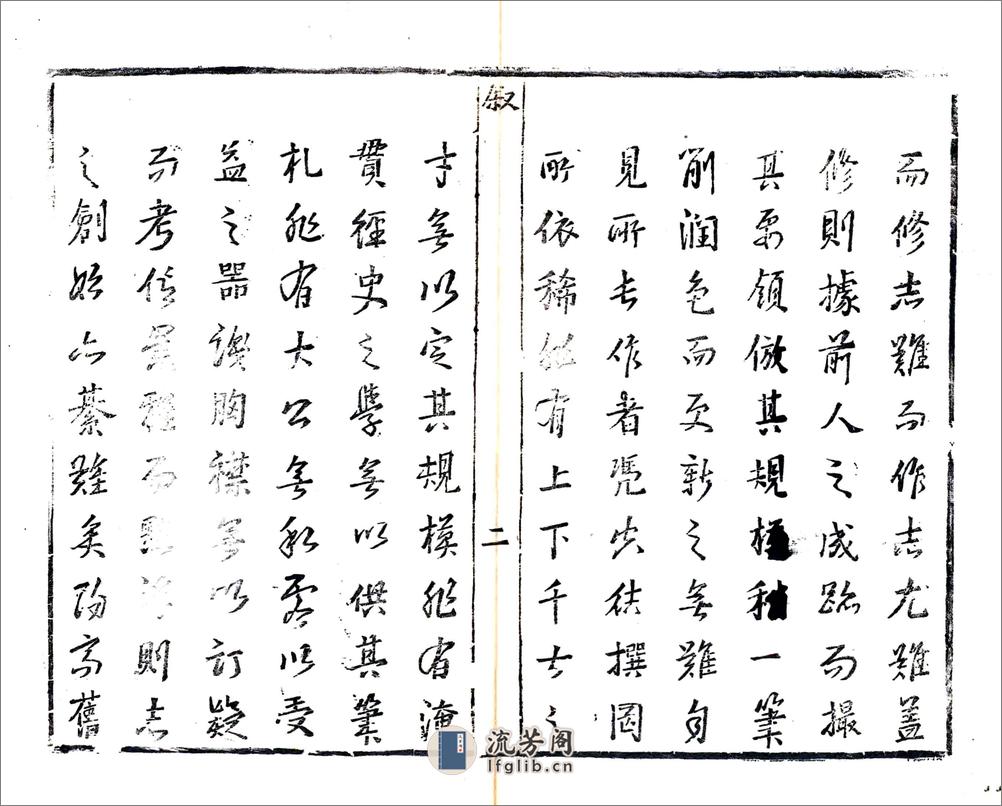 而修志難而作志尤難蓋
修則據前人之成跡而撮
其要領倣其規模一筆
削潤色而更新之無難自
見所長作者憑
撰
所依稀有上下千古之
叙
二
才無以定其規模非有淹
貫經史之學無以供其筆
札非有大公無私虛以受
益之器識胸襟無以訂疑
而考信而則志
之創始亦綦難矣陽高舊
流芳阁
lfglib.cn